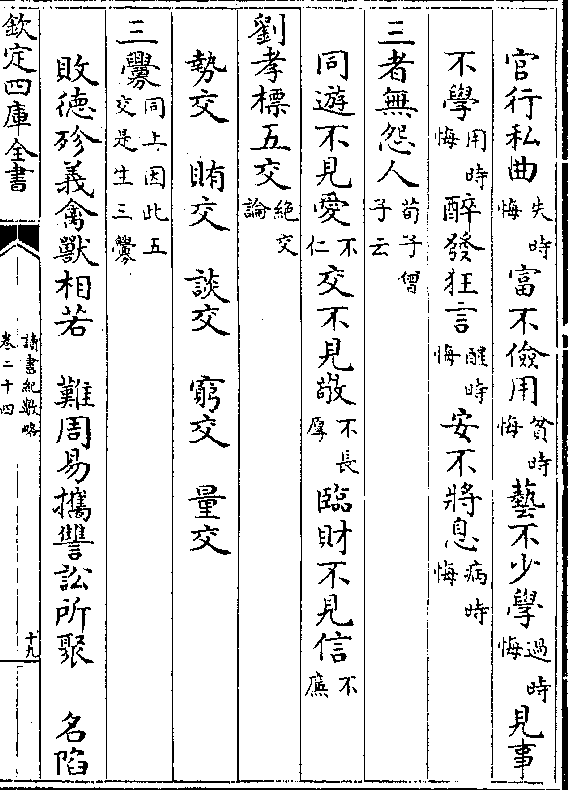 官行私曲失時悔富不儉用貧時悔藝不少學過時悔見事
不學用時悔醉發狂言醒時悔安不將息病時悔
三者無怨人荀子曾子云
同遊不見愛不仁交不見敬不長厚臨財不見信不廉
劉孝標五交絶交論
勢交 賄交 談交 窮交 量交
三釁同上因此五交是生三釁
敗德殄義禽獸相若 難固易攜讐訟所聚 名陷
欽定四庫全書
讀書紀數略
卷二十四
十九